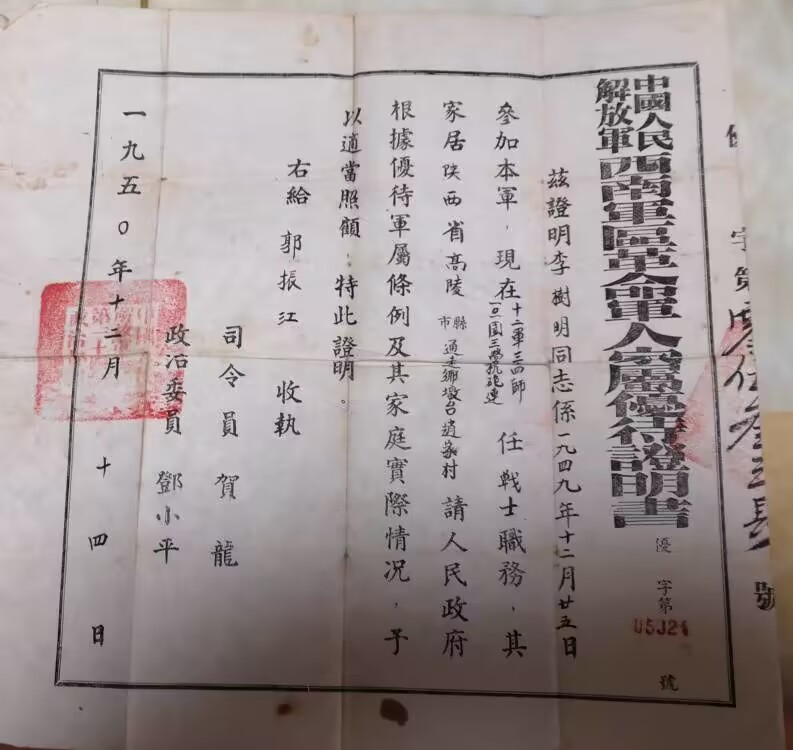 中國人民解放軍西南軍區革命軍人家屬優待證明書
優字第 號
茲證明李樹明同志係一九四九年十二月廿五日
參加本軍，現在十二軍三四師一〇一團三營機砲連任戰士職務，其
家居陝西省高陵縣市通走鄉墩台趙家村請人民政府
根據優待軍屬條例及其家庭實際情况，予
以適當照顧，特此證明。
右給郭振江收執
司令員賀龍
政治委員鄧小平
一九五〇年十二月十四日
字第 號